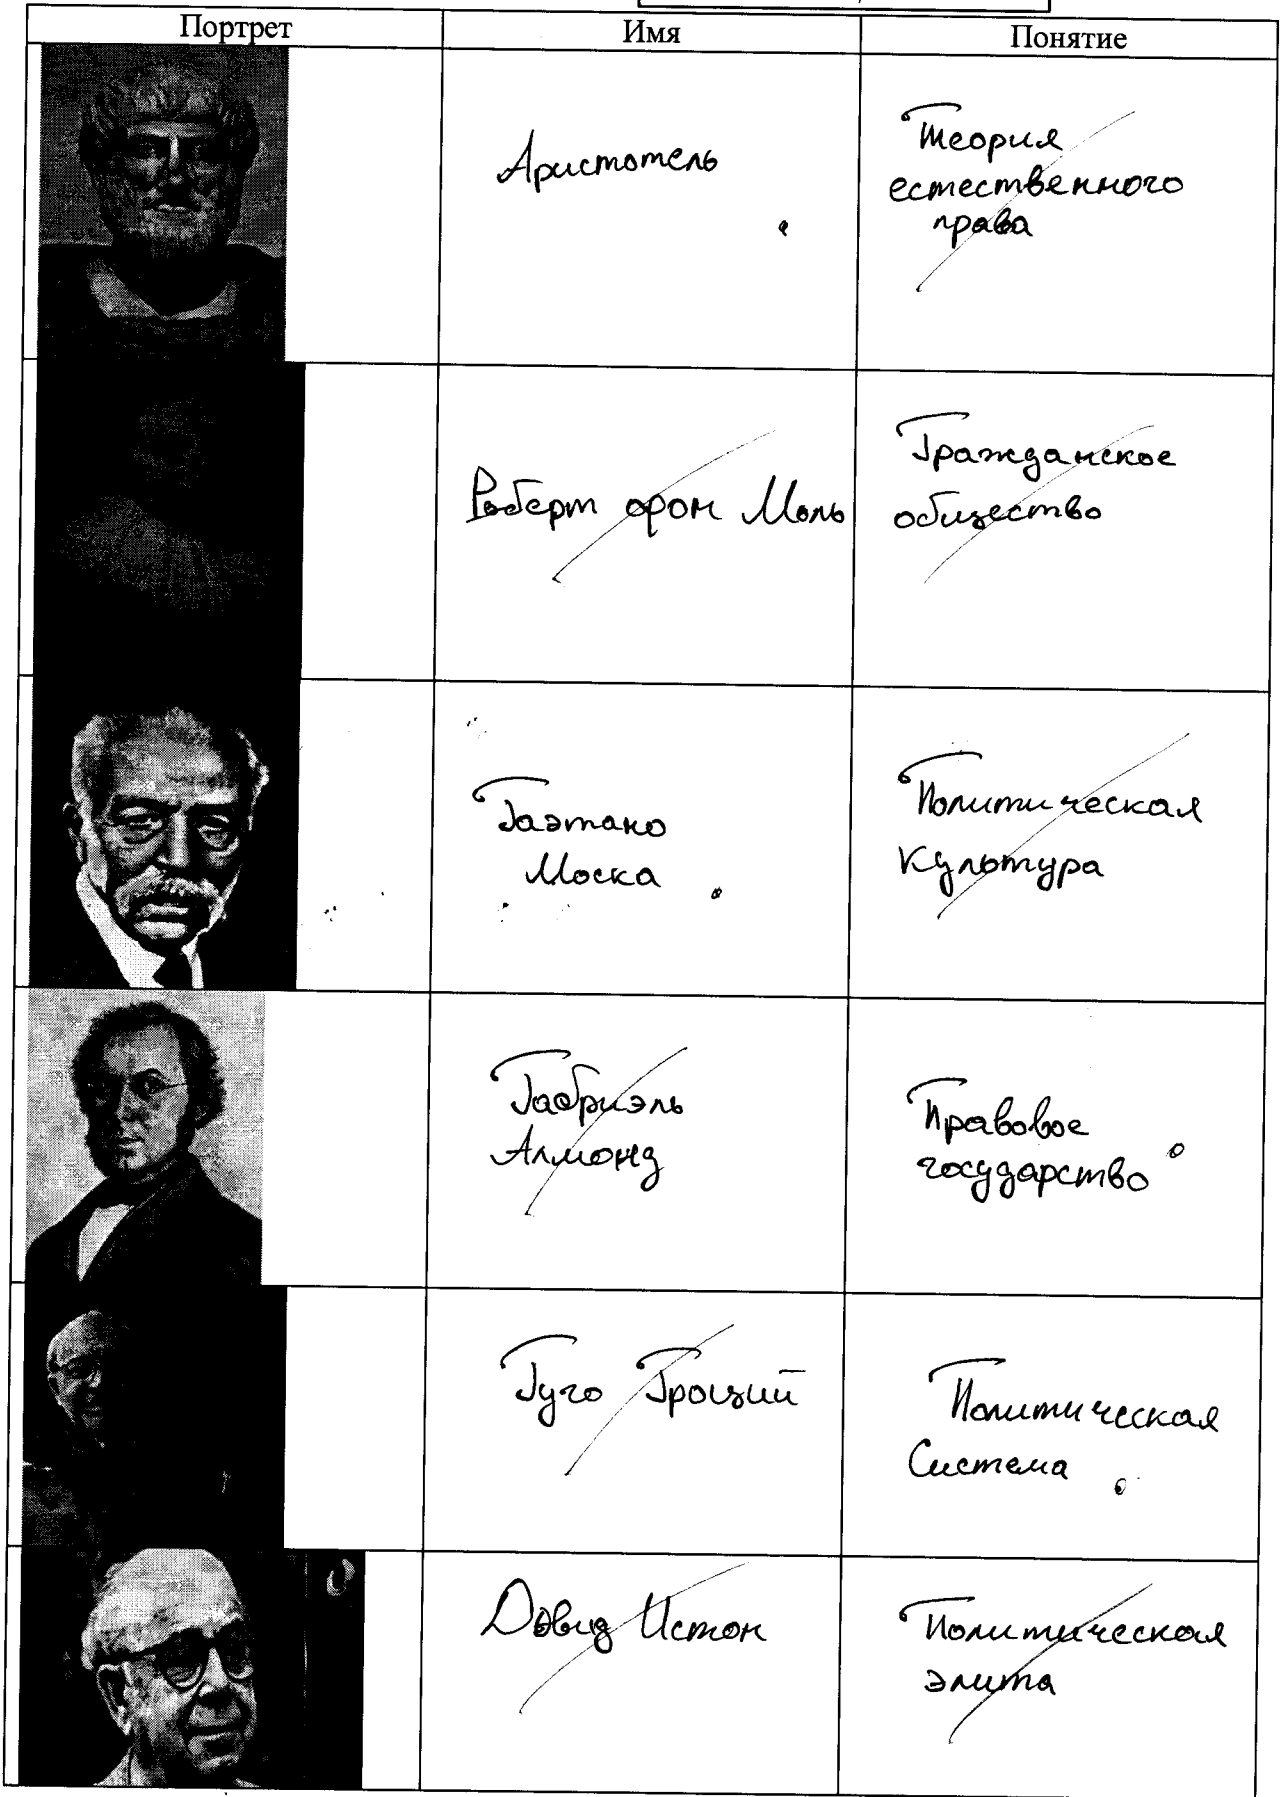 Портрет Имя Понятие
Аристотель
Теория
естественного
права
Роберт фон Моль
Гражданское
общество
Гаэтано
Моска
Политическая
культура
Габриэль
Алмонд
Правовое
государство
Гуго Гроций
Политическая
Система
Дэвид Истон
Политическая
элита